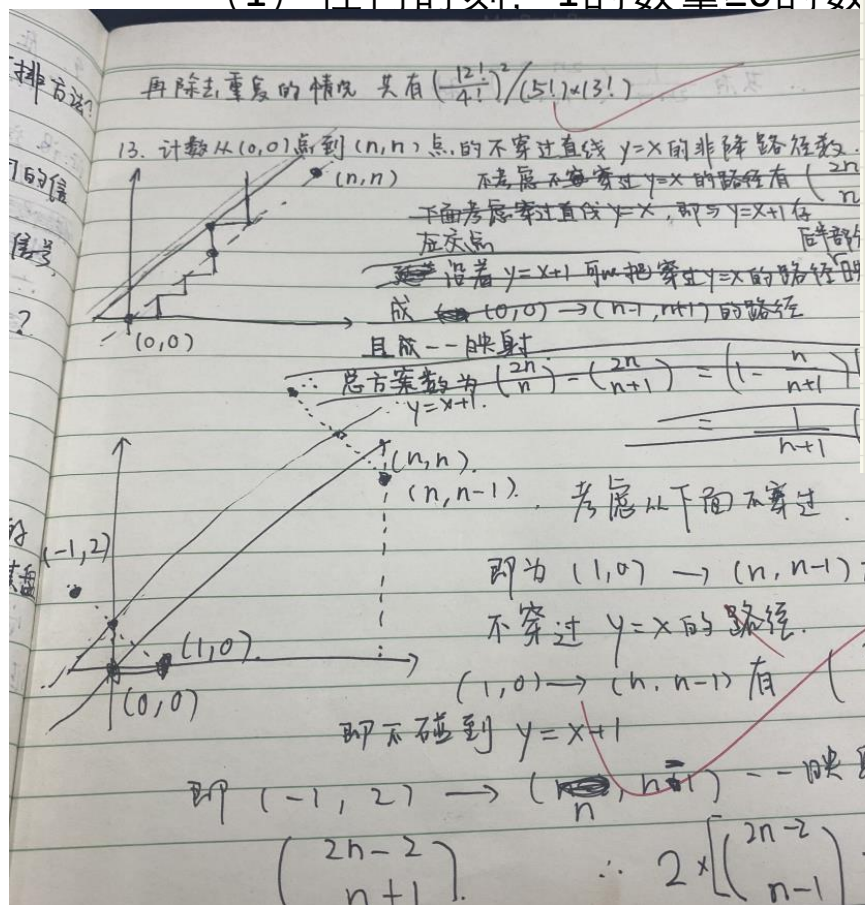 排方法?
再除去重复的情况 共有 (12!/4!)²/(5!)×(3!)
13. 计数从(0,0)点到(n,n)点的不穿过直线 y=x 的非降路径数.
的信
(n,n)
不考虑不穿过 y=x 的路径有 (2n n
下面考虑穿过直线 y=x, 即与 y=x+1 存
在交点
后半部分
信号,
沿着 y=x+1 可以把穿过 y=x 的路径
?
成 (0,0) → (n-1, n+1) 的路径
(0,0)
且成一一映射.
总方案数为 (2n n) - (2n n+1) = (1 - n/n+1)
y=x+1.
= 1/n+1
(n,n).
(n,n-1).
考虑从下面不穿过.
(-1,2)
即为 (1,0) → (n, n-1)
不穿过 y=x 的路径.
(1,0)
(0,0)
(1,0) → (n, n-1) 有 (
即不碰到 y=x+1
即 (-1, 2) → (n, n-1) 一一映
(2n-2 n+1).
∴ 2×[(2n-2 n-1)